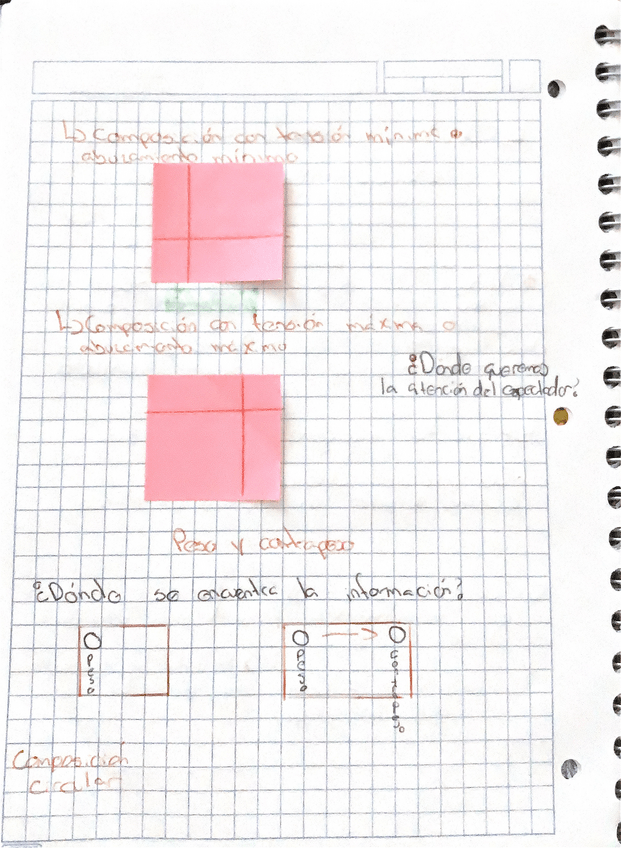 ↳ Composición con tensión mínima o
aburamiento mínimo
↳ Composición con tensión máxima o
aburamiento máximo
¿Donde queremos
la atención del espectador?
Peso y contrapeso
¿Dónde se encuentra la información?
Peso
Peso
Contrapeso
Composición
cicular